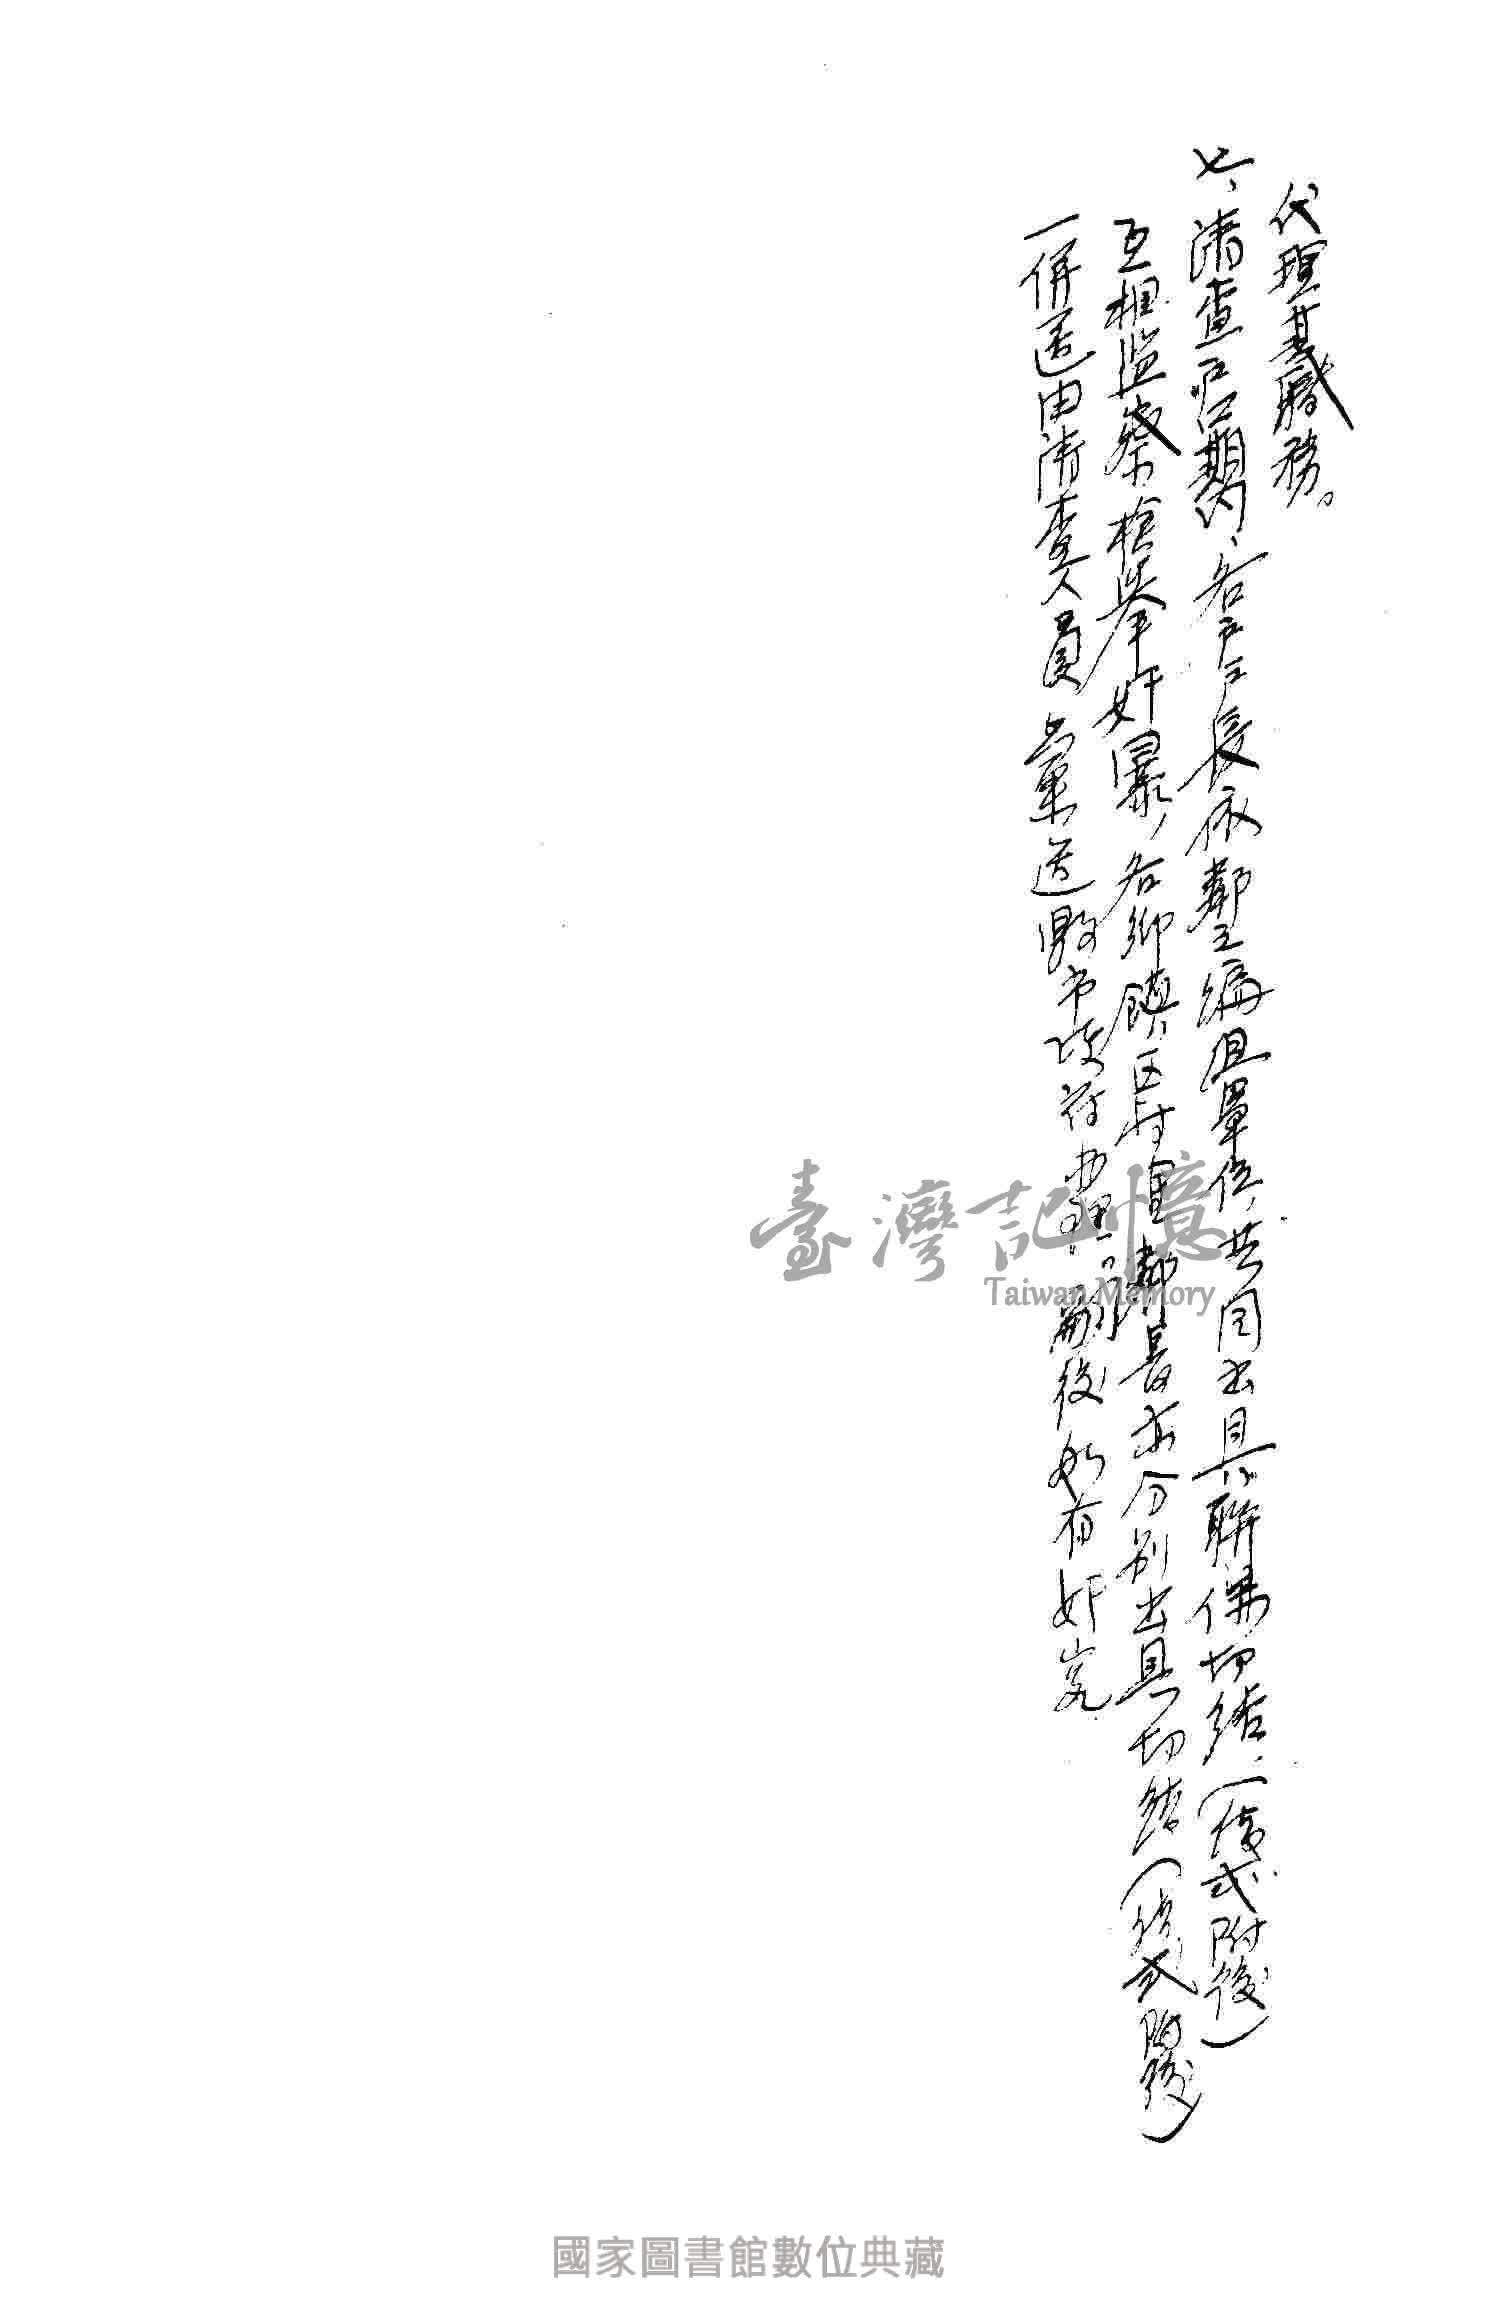 代理其職務。
七、清查户口期内、各户户長依鄰之編組單位、共同出具聯保切結、(結式附後)
互相監察、檢舉奸暴，各鄉鎮区村里鄰長亦分别出具切結(結式附後)
一併送由清查人員彙送縣市政府办理。嗣後如有奸宄
臺灣記憶
Taiwan Memory
國家圖書館數位典藏